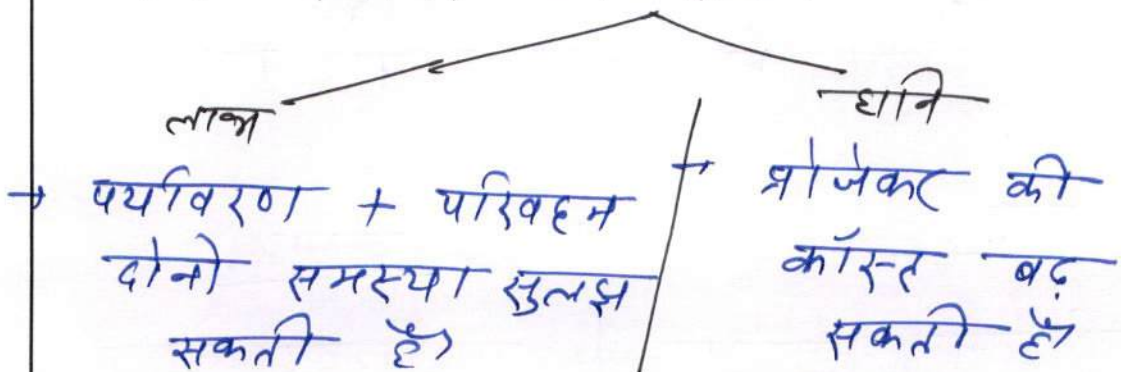 लाभ
→ पर्यावरण + परिवहन
दोनो समस्या सुलझ
सकती है
हानि
→ प्रोजेक्ट की
कॉस्ट बढ़
सकती है